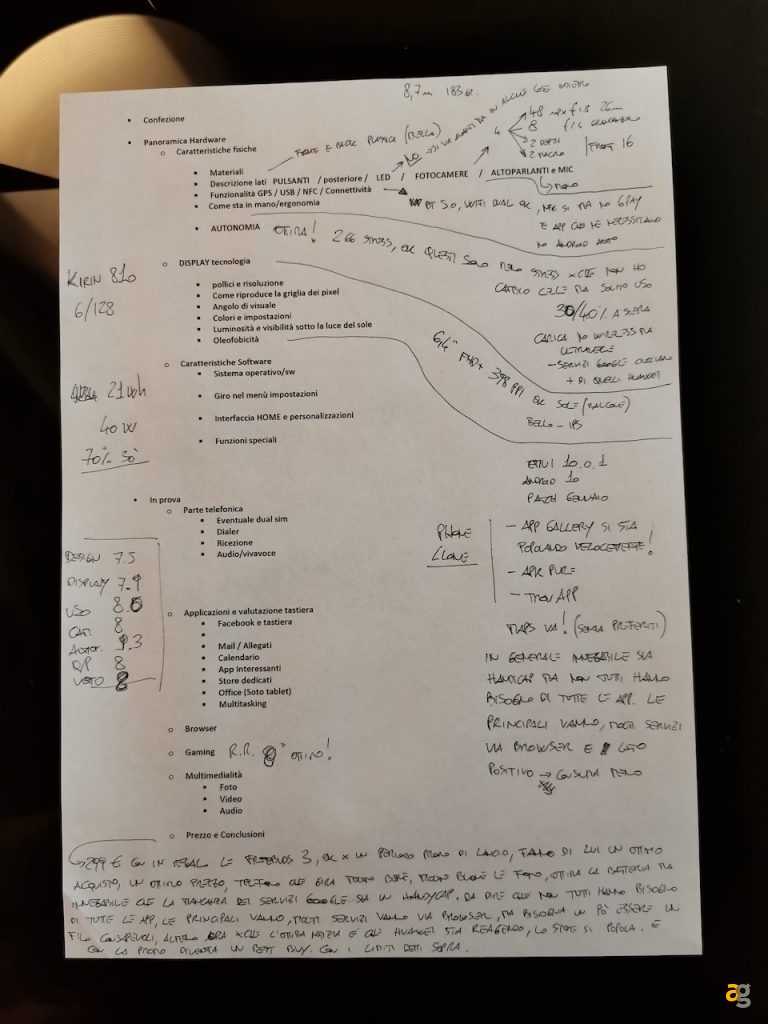 8,7 mm 183 gr.
• Confezione
• Panoramica Hardware
o Caratteristiche fisiche
FRONT E BACK PLASTICA (BELLO)
NO
4
48 mpx f 1.8 26mm
8 f/2.4 GRANDANGOLO
2 DEPTH
2 MACRO
FRONT 16
▪ Materiali
▪ Descrizione lati PULSANTI / posteriore / LED / FOTOCAMERE / ALTOPARLANTI e MIC
MONO
▪ Funzionalità GPS / USB / NFC / Connettività
BT 5.0, VOLTI DUAL OK, NFC SI MA NO GPAY
E APP CHE NE NECESSITANO
NO ANDROID AUTO
▪ Come sta in mano/ergonomia
▪ AUTONOMIA OTTIMA! 2 GG STRESS, OK QUESTI SONO MENO STRESS XCHE NON HO
CARICO MA SOLITO USO
30/40% A SERA
CARICA NO WIRELESS MA
- SERVIZI GOOGLE
+ DI QUELLI HUAWEI
KIRIN 810
6/128
o DISPLAY tecnologia
▪ pollici e risoluzione
▪ Come riproduce la griglia dei pixel
▪ Angolo di visuale
▪ Colori e impostazioni
▪ Luminosità e visibilità sotto la luce del sole
▪ Oleofobicità
6,4" FHD+ 398 PPI
OK SOLE (BALCONE)
BELLO - IPS
o Caratteristiche Software
▪ Sistema operativo/sw
▪ Giro nel menù impostazioni
▪ Interfaccia HOME e personalizzazioni
▪ Funzioni speciali
40 W
70% 30'
EMUI 10.0.1
ANDROID 10
PATCH GENNAIO
• In prova
o Parte telefonica
▪ Eventuale dual sim
▪ Dialer
▪ Ricezione
▪ Audio/vivavoce
PHONE
CLONE
- APP GALLERY SI STA
POPOLANDO VELOCEMENTE!
- APK PURE
- TROVAPP
MAPS VA! (SENZA PREFERITI)
DESIGN 7.5
DISPLAY 7.9
USO 8.0
CAM. 8
AUTON. 9.3
Q/P 8
VOTO 8
o Applicazioni e valutazione tastiera
▪ Facebook e tastiera
▪
▪ Mail / Allegati
▪ Calendario
▪ App Interessanti
▪ Store dedicati
▪ Office (Soto tablet)
▪ Multitasking
IN GENERALE INNEGABILE SIA
HANDICAP MA NON TUTTI HANNO
BISOGNO DI TUTTE LE APP. LE
PRINCIPALI VANNO, MOLTI SERVIZI
VIA BROWSER E LATO
POSITIVO → CONSUMA MENO
o Browser
o Gaming R.R. 8" OTTIMO!
o Multimedialità
▪ Foto
▪ Video
▪ Audio
o Prezzo e Conclusioni
299 € CON IN REGALO LE FREEBUDS 3, OK X UN PERIODO PROMO DI LANCIO, FANNO DI LUI UN OTTIMO
ACQUISTO, UN OTTIMO PREZZO, TELEFONO CHE GIRA MOLTO BENE, MOLTO BUONE LE FOTO, OTTIMA LA BATTERIA MA
INNEGABILE CHE LA MANCANZA DEI SERVIZI GOOGLE SIA UN HANDYCAP. DA DIRE CHE NON TUTTI HANNO BISOGNO
DI TUTTE LE APP, LE PRINCIPALI VANNO, MOLTI SERVIZI VANNO VIA BROWSER, MA BISOGNA UN PÒ ESSERE UN
FILO CONSAPEVOLI, ALMENO ORA XCHE L'OTTIMA NOTIZIA È CHE HUAWEI STA REAGENDO, LO STORE SI POPOLA. E
CON LA PROMO DIVENTA UN BEST BUY. CON I LIMITI DETTI SOPRA.
ag